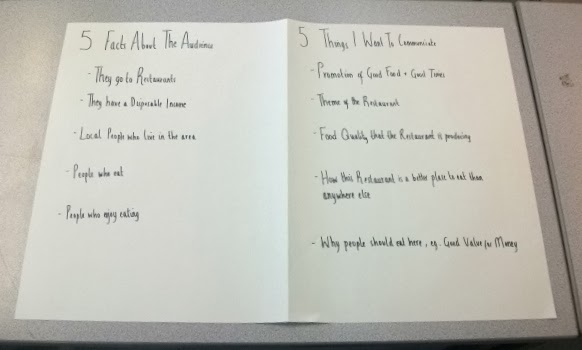 5 Facts About The Audience
- They go to Restaurants
- They have a Disposable Income
- Local People who live in the area
- People who eat
- People who enjoy eating
5 Things I Want To Communicate
- Promotion of Good Food + Good Times
- Theme of the Restaurant
- Food Quality that the Restaurant is producing
- How this Restaurant is a better place to eat than
anywhere else
- Why people should eat here, eg. Good Value for Money